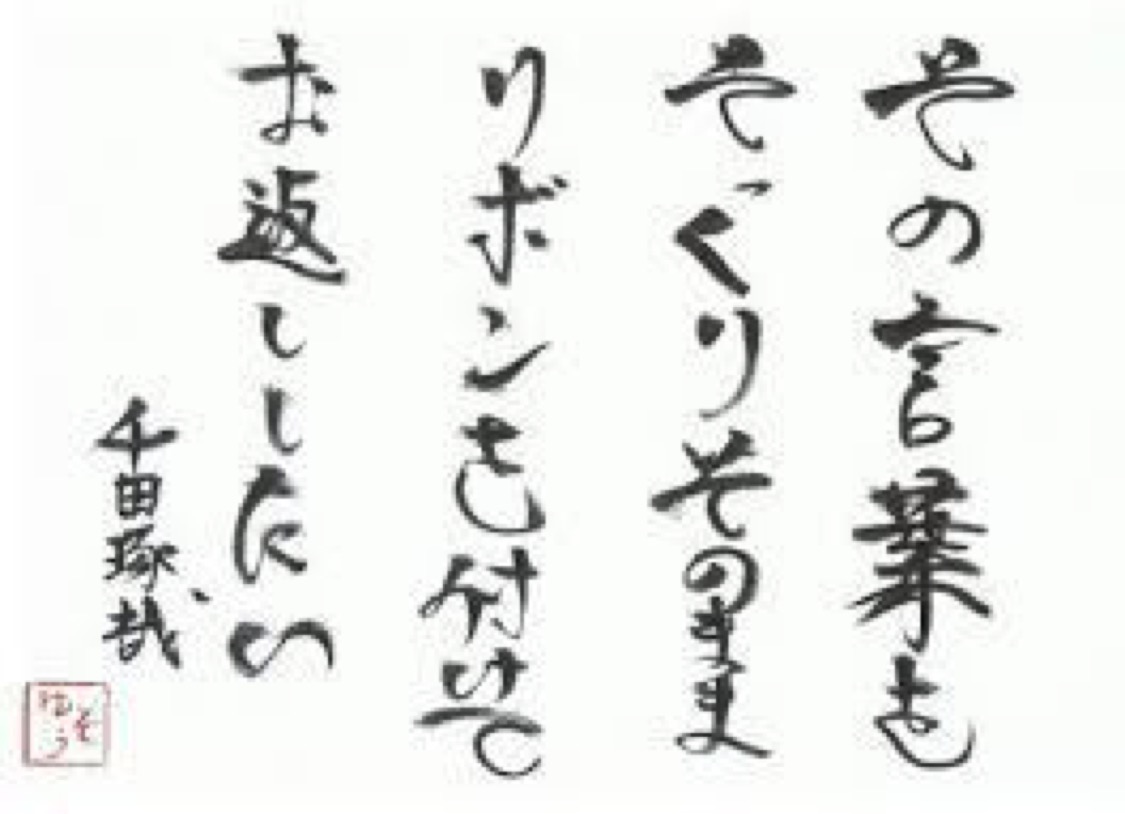 その言葉を
そっくりそのまま
リボンを付けて
お返ししたい
千田琢哉